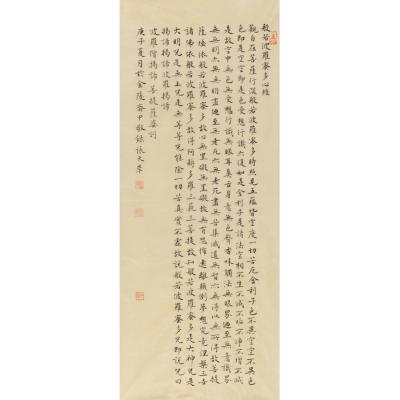 般若波羅蜜多心經
觀自在菩薩行深般若波羅蜜多時照見五蘊皆空度一切苦厄舍利子色不異空空不異色
色即是空空即是色受想行識亦復如是舍利子是諸法空相不生不滅不垢不淨不增不減
是故空中無色無受想行識無眼耳鼻舌身意無色聲香味觸法無眼界迺至無意識界
無無明亦無無明盡迺至無老死亦無老死盡無苦集滅道無智亦無得以無所得故菩提
薩埵依般若波羅蜜多故心無罣礙無罣礙故無有恐怖遠離顛倒夢想究竟涅槃三世
諸佛依般若波羅蜜多故得阿耨多羅三藐三菩提故知般若波羅蜜多是大神咒是
大明咒是無上咒是無等等咒能除一切苦真實不虛故說般若波羅蜜多咒即說咒曰
揭諦揭諦波羅揭諦
波羅僧揭諦菩提薩婆訶
庚子夏月於金陵齋中敬錄張大